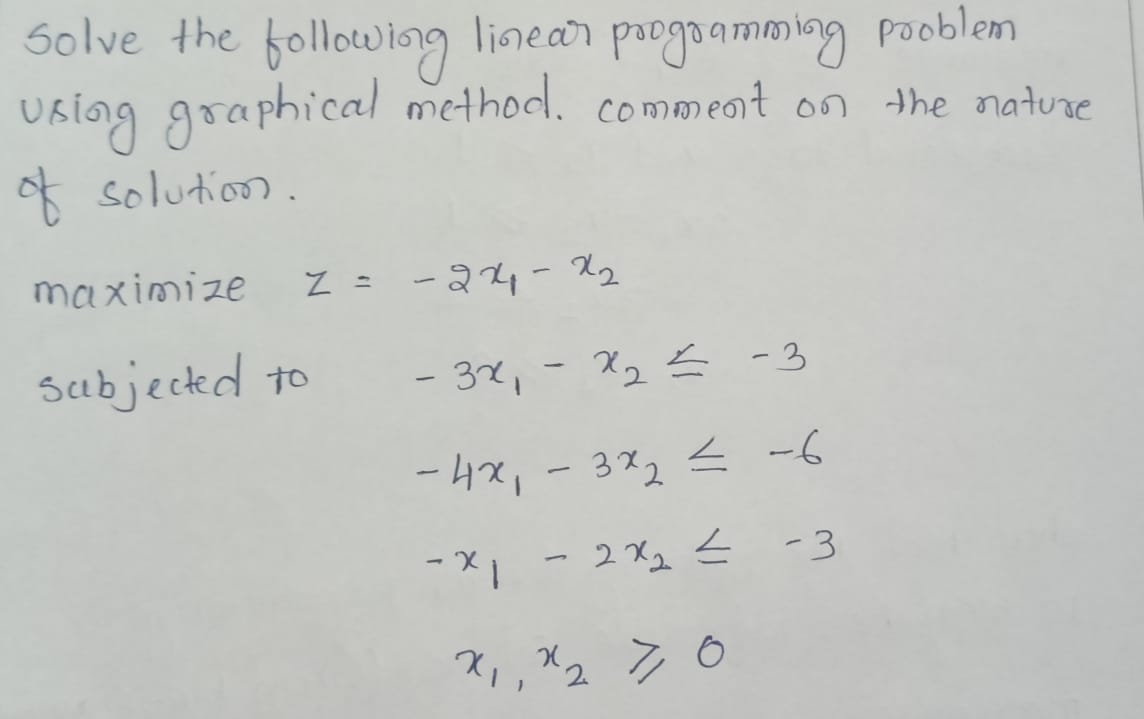 Solve the following linear programming problem
using graphical method. comment on the nature
of solution.
maximize z = -2x₁ - x₂
subjected to - 3x₁ - x₂ ≤ -3
-4x₁ - 3x₂ ≤ -6
-x₁ - 2x₂ ≤ -3
x₁, x₂ ≥ 0